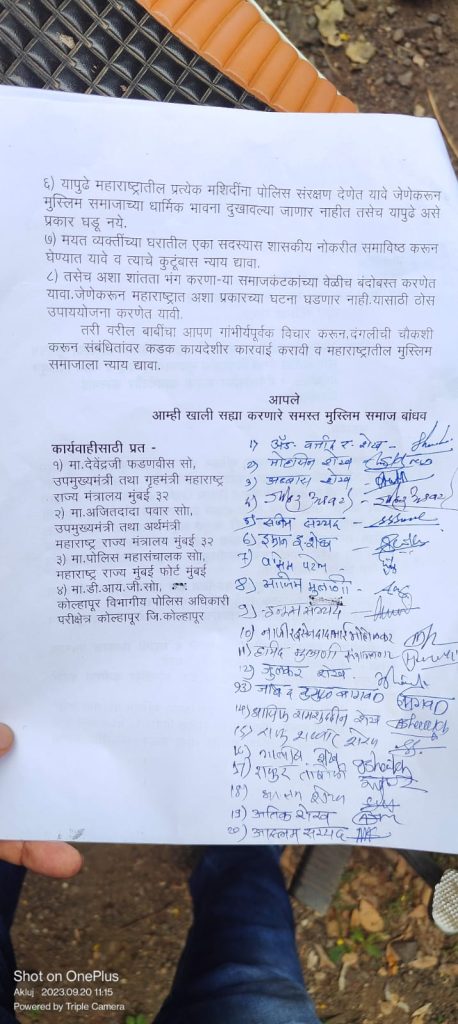 ६) यापुढे महाराष्ट्रातील प्रत्येक मशिदींना पोलिस संरक्षण देणेत यावे जेणेकरून
मुस्लिम समाजाच्या धार्मिक भावना दुखावल्या जाणार नाहीत तसेच यापुढे असे
प्रकार घडू नये.
७) मयत व्यक्तींच्या घरातील एका सदस्यास शासकीय नोकरीत समाविष्ठ करून
घेण्यात यावे व त्याचे कुटुंबास न्याय द्यावा.
८) तसेच अशा शांतता भंग करणा-या समाजकंटकांच्या वेळीच बंदोबस्त करणेत
यावा.जेणेकरून महाराष्ट्रात अशा प्रकारच्या घटना घडणार नाही.यासाठी ठोस
उपाययोजना करणेत यावी.
तरी वरील बाबींचा आपण गांभीर्यपूर्वक विचार करून,दंगलीची चौकशी
करून संबंधितांवर कडक कायदेशीर कारवाई करावी व महाराष्ट्रातील मुस्लिम
समाजाला न्याय द्यावा.
आपले
आम्ही खाली सह्या करणारे समस्त मुस्लिम समाज बांधव
कार्यवाहीसाठी प्रत -
१) मा.देवेंद्रजी फडणवीस सो,
उपमुख्यमंत्री तथा गृहमंत्री महाराष्ट्र
राज्य मंत्रालय मुंबई ३२
२) मा.अजितदादा पवार सोा,
उपमुख्यमंत्री तथा अर्थमंत्री
महाराष्ट्र राज्य मंत्रालय मुंबई ३२
३) मा.पोलिस महासंचालक सोा,
महाराष्ट्र राज्य मुंबई फोर्ट मुंबई
४) मा.डी.आय.जी.सोा,
कोल्हापूर विभागीय पोलिस अधिकारी
परीक्षेत्र कोल्हापूर जि.कोल्हापूर
१) अॅड. वजीर र. शेख -
२) मोहसिन शेख
३) अब्बास शेख
४)
५) सलीम सय्यद -
६) इमान इ. शेख
७) वसिम पटेल
८) आलिम मुलाणी
९) सय्यद
१०)
११)
१२) जुल्कर शेख
१३) जावेद युसुफ बागवान बागवान
१४) आसिफ शमशुद्दीन शेख
१५)
१६) शेख
१७) शकुर तांबोळी
१८)
१९) अतिक शेख
२०) आस्लम सय्यद
Shot on OnePlus
Akluj · 2023.09.20 11:15
Powered by Triple Camera